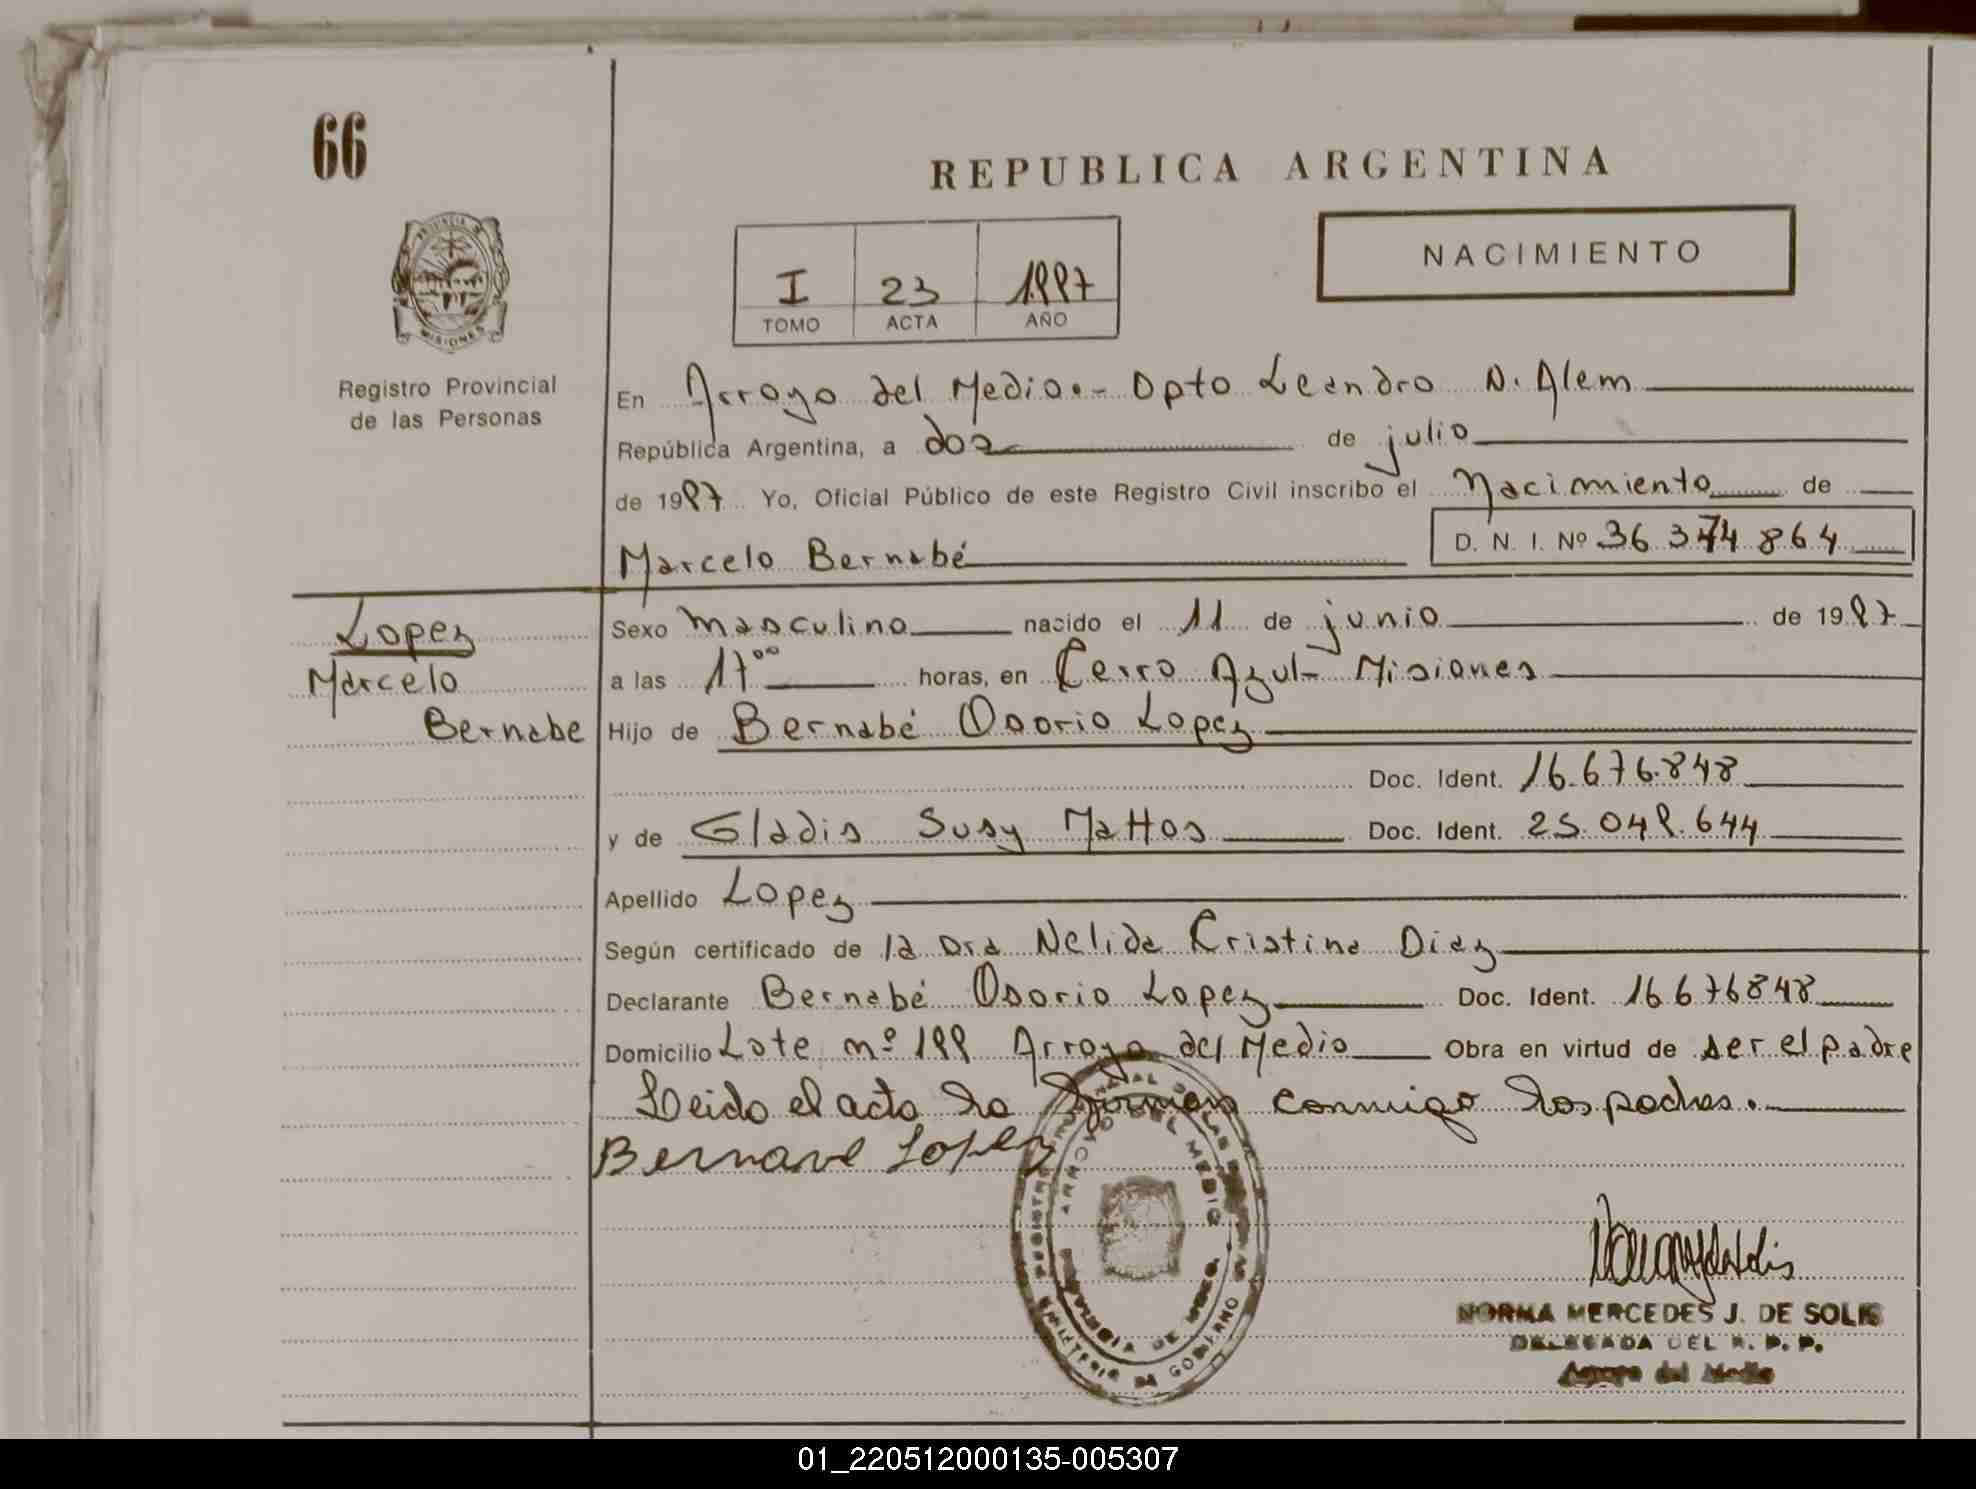 66
REPUBLICA ARGENTINA
PROVINCIA DE
MISIONES
NACIMIENTO
I 23 1997
TOMO ACTA AÑO
Registro Provincial
de las Personas
En Arroyo del Medio.- Dpto Leandro N. Alem
República Argentina, a dos de julio
de 1997 Yo, Oficial Público de este Registro Civil inscribo el Nacimiento de
D. N. I. Nº 36 374 864
Marcelo Bernabé
Lopez
Marcelo
Bernabe
Sexo masculino nacido el 11 de junio de 1997
a las 17⁰⁰ horas, en Cerro Azul- Misiones
Hijo de Bernabé Osorio Lopez
Doc. Ident. 16.676.848
y de Gladis Susy Mattos Doc. Ident. 25.049.644
Apellido Lopez
Según certificado de la Dra Nelida Cristina Diez
Declarante Bernabé Osorio Lopez Doc. Ident. 16676848
Domicilio Lote nº 199 Arroyo del Medio Obra en virtud de ser el padre
Leido el acta la firman conmigo los padres.
Bernave Lopez
ARROYO DEL MEDIO
NORMA MERCEDES J. DE SOLIS
DELEGADA DEL R. P. P.
Arroyo del Medio
01_220512000135-005307